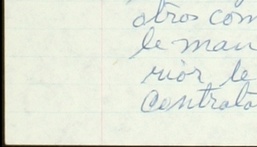 otros com
le man
rior le
Contrato